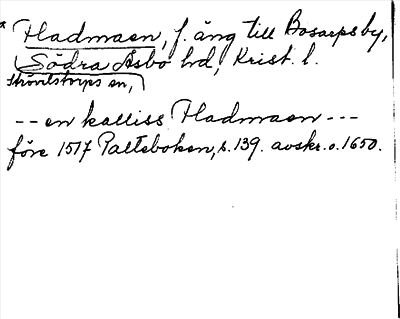 * Hladmaen, f. äng till Bosarps by,
Södra Åsbo hd, Krist. l.
Strövelstorps sn,
-- en kalliss Hladmaen ---
före 1517 Palteboken, s. 139. avskr. o. 1650.